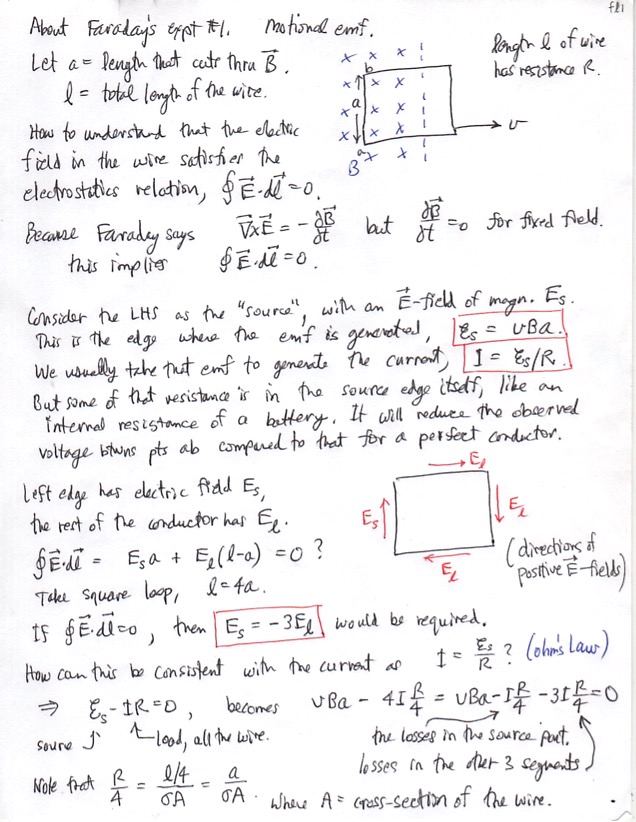 fl1
About Faraday's Expt #1. Motional emf.
Let a = length that cuts thru B⃗.
l = total length of the wire.
length l of wire
has resistance R.
x x x
b
x x x x
a
x x x x
x x x x
a
B x x
v
How to understand that the electric
field in the wire satisfies the
electrostatics relation, ∮E⃗·dl⃗ = 0.
Because Faraday says ∇⃗×E⃗ = -∂B⃗/∂t but ∂B⃗/∂t = 0 for fixed field.
this implies ∮E⃗·dl⃗ = 0.
Consider the LHS as the "source", with an E⃗-field of magn. Es.
This is the edge where the emf is generated, Ɛs = vBa.
We usually take that emf to generate the current, I = Ɛs/R.
But some of that resistance is in the source edge itself, like an
internal resistance of a battery. It will reduce the observed
voltage btwns pts ab compared to that for a perfect conductor.
Left edge has electric field Es,
the rest of the conductor has El.
∮E⃗·dl⃗ = Es a + El(l-a) = 0 ?
Take square loop, l = 4a.
El
Es
El
El
(directions of
positive E⃗-fields)
If ∮E⃗·dl⃗ = 0, then Es = -3El would be required.
How can this be consistent with the current as I = Ɛs/R ? (ohm's Law)
⇒ Ɛs - IR = 0, becomes vBa - 4I R/4 = vBa - I R/4 - 3I R/4 = 0
source load, all the wire.
the losses in the source part.
losses in the other 3 segments
Note that R/4 = l/4/σA = a/σA. where A = cross-section of the wire.